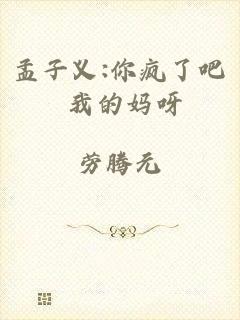 孟子义:你疯了吧
我的妈呀
劳腾元